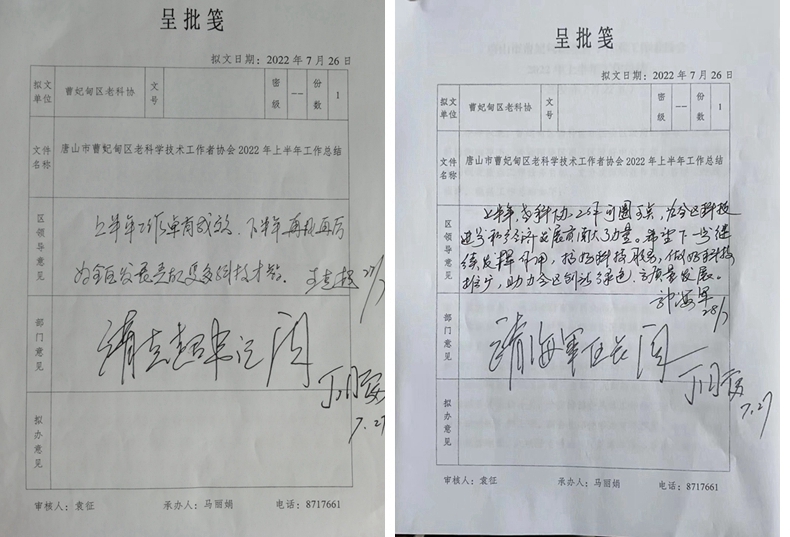 呈批笺
拟文日期：2022年7月26日
拟文单位 曹妃甸区老科协 文号 密级 一一 份数 1
文件名称 唐山市曹妃甸区老科学技术工作者协会2022年上半年工作总结
区领导意见
上半年工作卓有成效，下半年再接再厉
为全区发展贡献更多科技才智。
27/7
部门意见
请志超书记阅
7.27
拟办意见
审核人：袁征 承办人：马丽娟 电话：8717661
呈批笺
拟文日期：2022年7月26日
拟文单位 曹妃甸区老科协 文号 密级 一一 份数 1
文件名称 唐山市曹妃甸区老科学技术工作者协会2022年上半年工作总结
区领导意见
上半年，老科协工作可圈可点，为全区科技
进步和经济发展贡献了力量。希望下一步继
续发挥作用，搞好科技服务，做好科技
推广，助力全区创新绿色、高质量发展。
海军
28/7
部门意见
请海军区长阅
7.27
拟办意见
审核人：袁征 承办人：马丽娟 电话：8717661